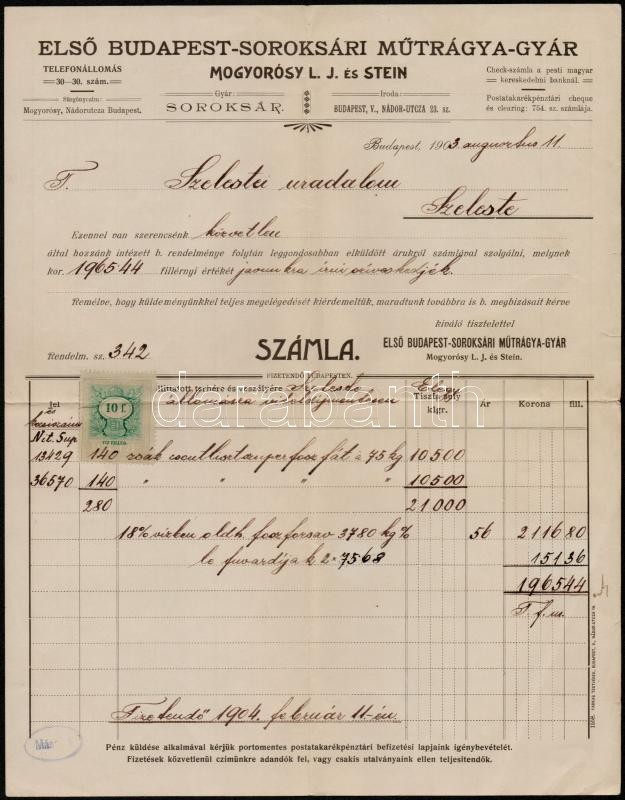 ELSŐ BUDAPEST-SOROKSÁRI MŰTRÁGYA-GYÁR
TELEFONÁLLOMÁS
30—30. szám.
Sürgönyczim:
Mogyorósy, Nádorutcza Budapest.
MOGYORÓSY L. J. és STEIN
Gyár:
SOROKSÁR.
Iroda:
BUDAPEST, V., NÁDOR-UTCZA 23. sz.
Check-számla a pesti magyar
kereskedelmi banknál.
Postatakarékpénztári cheque
és clearing: 754. sz. számlája.
Budapest, 1903. augusztus 11.
T. Szelestei uradalom
Szeleste
Ezennel van szerencsénk közvetlen
által hozzánk intézett b. rendelménye folytán leggondosabban elküldött árukról számlával szolgálni, melynek
kor. 196544 fillérnyi értékét javunkra irni sziveskedjék.
Remélve, hogy küldeményünkkel teljes megelégedését kiérdemeltük, maradtunk továbbra is b. megbizásait kérve
kiváló tisztelettel
ELSŐ BUDAPEST-SOROKSÁRI MŰTRÁGYA-GYÁR
Mogyorósy L. J. és Stein.
Rendelm. sz. 342
SZÁMLA.
FIZETENDŐ BUDAPESTEN.
Jel és
10 f.
TIZ FILLÉR
terhére és veszélyére
állomásra
Elegy
Tiszta suly
klgr.
Ár
Korona
fill.
Nit. Sup
13429 140 zsák csontlisztsuperfoszfát à 75 kg 10500
36570 140 " " " " 10500
280 21000
18% vizben oldh. foszforsav 3780 kg% 56 2116 80
le fuvardijak 2 × 7568 151 36
1965 44
T. f. m.
Fizetendő 1904. február 11-én.
Pénz küldése alkalmával kérjük portomentes postatakarékpénztári befizetési lapjaink igénybevételét.
Fizetések közvetlenül czimünkre adandók fel, vagy csakis utalványaink ellen teljesitendők.
darabanth